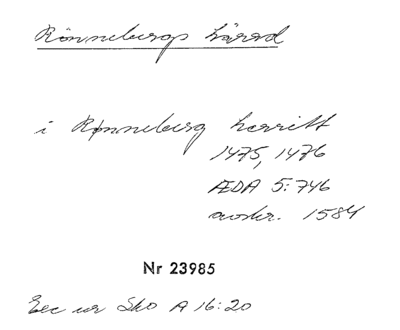 Rönnebergs härad
i Rønneberg herritt
1475, 1476
ÆDA 5:746
avskr. 1584
Nr 23985
Exc ur Sko A 16:20